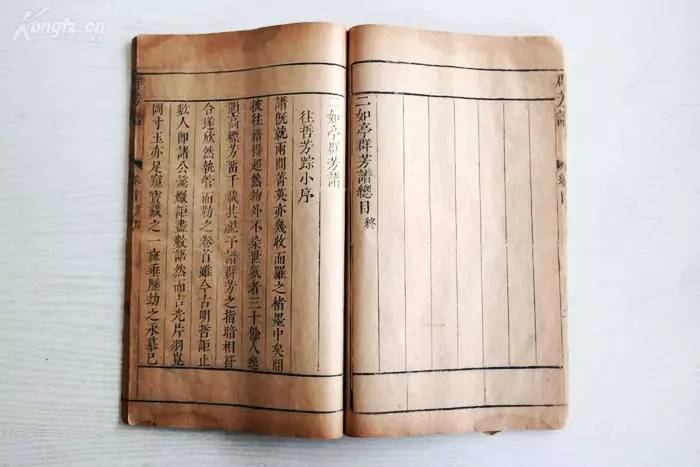 Kongfz.cn
群芳譜
卷目
二如亭群芳譜總目終
二如亭群芳譜
往哲芳踪小序
譜既就兩間菁英亦幾收而羅之楮墨中矣間
披往籍得超然物外不染世氛者三十餘人幾
謂高標芳躅千載共
予譜群芳之指暗相符
合遂欣然執管而勒之卷首雖今古明哲詎止
數人卽諸公懿媺詎盡數語然而吉光片羽崑
岡寸玉亦足窺寶藏之一斑垂歷劫之永慕已